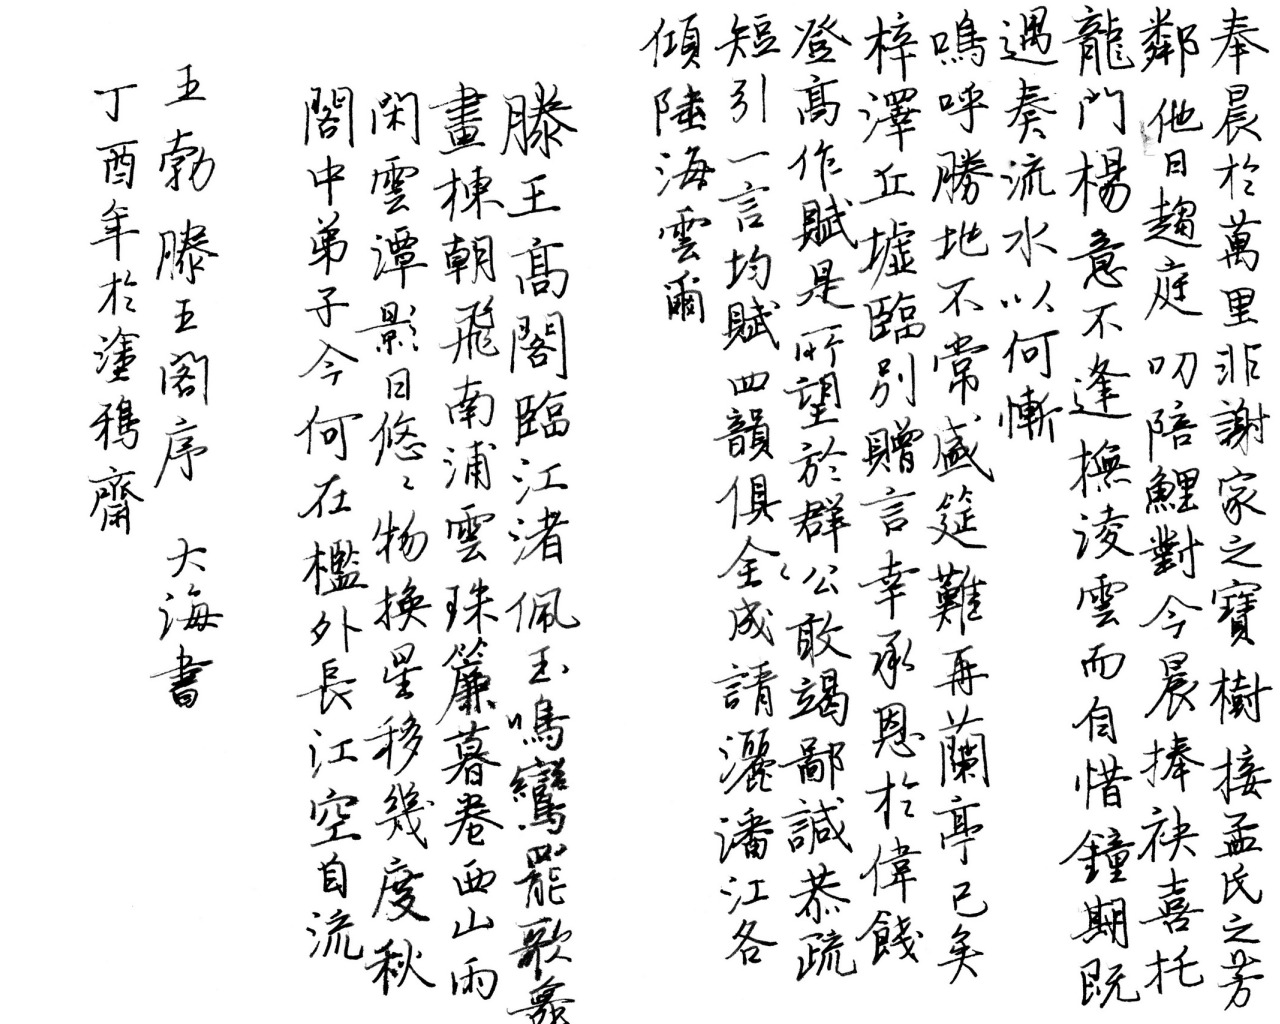 奉晨於萬里非謝家之寶樹接孟氏之芳
鄰他日趨庭叨陪鯉對今晨捧袂喜托
龍門楊意不逢撫淩雲而自惜鐘期既
遇奏流水以何慚
鳴呼勝地不常盛筵難再蘭亭已矣
梓澤丘墟臨別贈言幸承恩於偉餞
登高作賦是所望於群公敢竭鄙誠恭疏
短引一言均賦四韻俱全〻成請灑潘江各
傾陸海雲爾
滕王高閣臨江渚佩玉鳴鸞罷歌舞
畫棟朝飛南浦雲珠簾暮卷西山雨
閑雲潭影日悠〻物換星移幾度秋
閣中弟子今何在檻外長江空自流
王勃滕王閣序 大海書
丁酉年於塗鴉齋